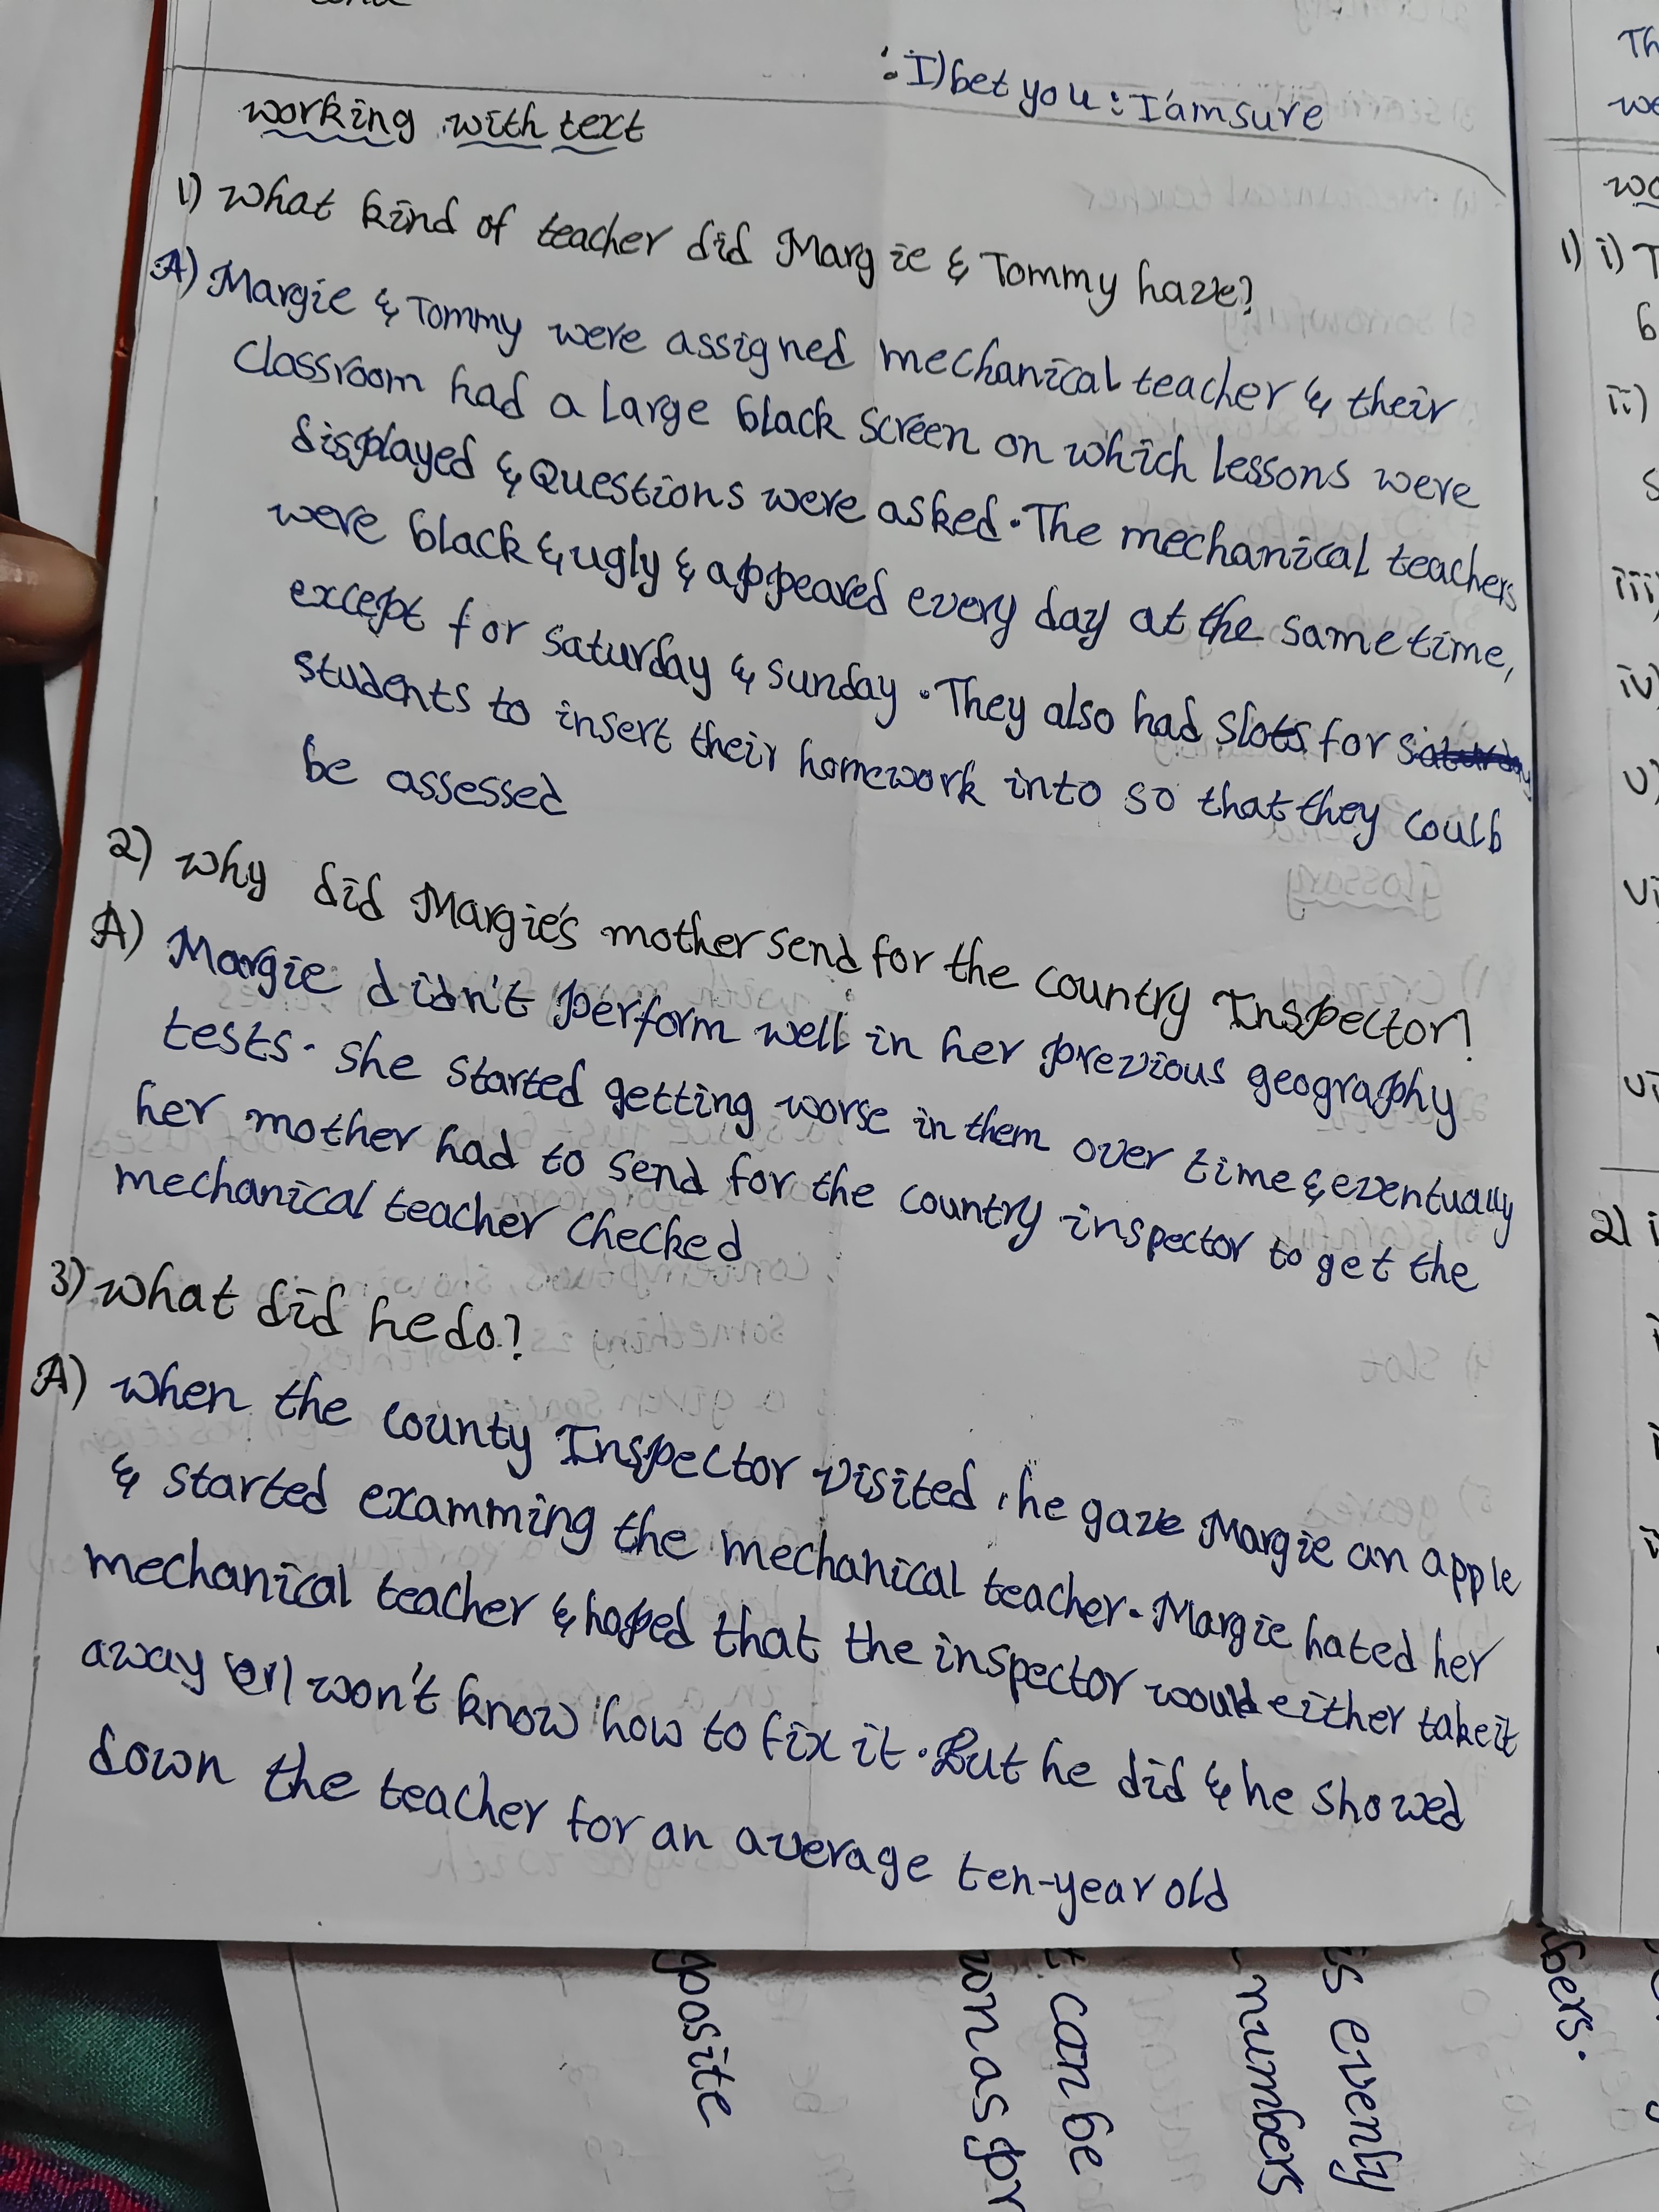 : I) bet you : I'am sure
working with text
1) what kind of teacher did Margie & Tommy have?
A) Margie & Tommy were assigned mechanical teacher & their
classroom had a large black screen on which lessons were
displayed & Questions were asked. The mechanical teachers
were black & ugly & appeared every day at the same time,
except for saturday & sunday. They also had slots for
students to insert their homework into so that they could
be assessed
2) why did Margie's mother send for the country Inspector?
A) Margie didn't perform well in her previous geography
tests. she started getting worse in them over time & eventually
her mother had to send for the country inspector to get the
mechanical teacher checked
3) what did he do?
A) when the county Inspector visited, he gave Margie an apple
& started examming the mechanical teacher. Margie hated her
mechanical teacher & hoped that the inspector would either take it
away (or) won't know how to fix it. But he did & he showed
down the teacher for an average ten-year old
Th
we
wo
1) i) T
6
ii)
s
iii)
iv)
v)
vi
vi
2) i
posite
won as
t can be
numbers
is evenly
bers.